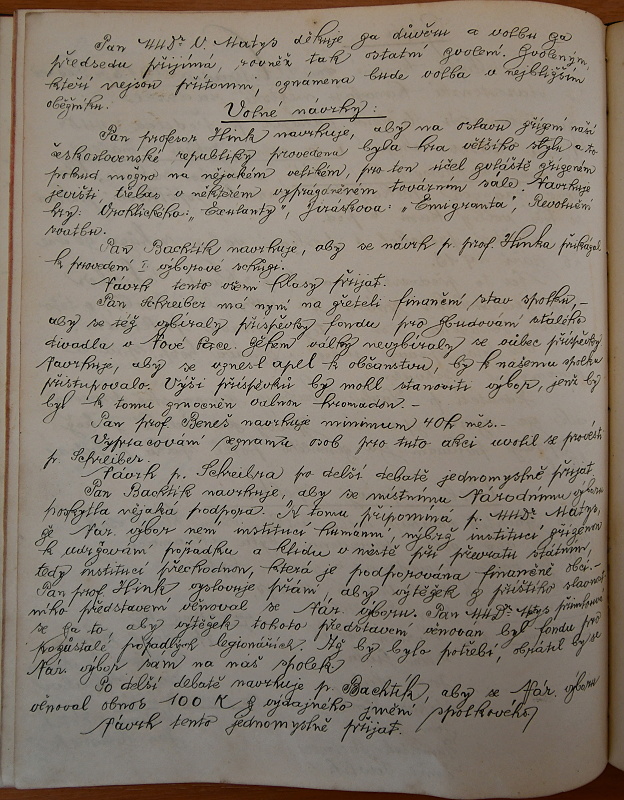 Pan MUDr V. Matys děkuje za důvěru a volbu za
předsedu přijímá, rovněž tak ostatní zvolení. Zvoleným,
kteří nejsou přítomni, oznámena bude volba v nejbližším
oběžníku.
Volné návrhy:
Pan profesor Hink navrhuje, aby na oslavu zřízení naší
československé republiky provedena byla hra většího stylu a to
pokud možno na nějakém velikém, pro ten účel zvláště zřízeném
jevišti třebas v některém vyprázdněném továrním sále. Navrhuje
hry: Vrchlického: „Exulanty", Jiráskova: „Emigranta", Revoluční
svatbu.
Pan Bachtík navrhuje, aby se návrh p. prof. Hinka přikázal
k provedení I výborové schůzi.
Návrh tento všemi hlasy přijat.
Pan Schreiber má nyní na zřeteli finanční stav spolku,-
aby se též vybíraly příspěvky fondu pro zbudování stálého
divadla v Nové Pace. Během války nevybíraly se vůbec příspěvky
Navrhuje, aby se vznesl apel k občanstvu, by k našemu spolku
přistupovalo. Výši příspěvků by mohl stanoviti výbor, jenž by
byl k tomu zmocněn valnou hromadou.-
Pan prof Beneš navrhuje minimum 40h měs.-
Vypracování seznamu osob pro tuto akci uvolil se provésti
p. Schreiber.
Návrh p. Schreibra po delší debatě jednomyslně přijat.
Pan Bachtík navrhuje, aby se místnímu Národnímu výboru
poskytla nějaká podpora. K tomu připomíná p. MUDr Matys,
že Nár. výbor není institucí humánní, nýbrž institucí zřízenou
k udržování pořádku a klidu v městě při převratu státním,
tedy institucí přechodnou, která je podporována finančně obcí.-
Pan prof. Hink vyslovuje přání, aby výtěžek z příštího slavnost-
ního představení věnoval se Nár. výboru. Pan MUDr Matys přimlouvá
se za to, aby výtěžek tohoto představení věnován byl fondu pro
pozůstalé po padlých legionářích. Již by bylo potřebí, obrátil by se
Nár. výbor sám na náš spolek
Po delší debatě navrhuje p. Bachtík, aby se Nár. výboru
věnoval obnos 100 K z výdajného jmění spolkového
Návrh tento jednomyslně přijat.